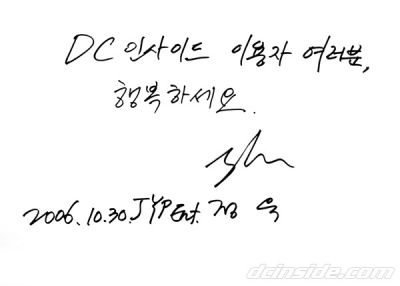 DC인사이드 이용자 여러분,
행복하세요.
2006.10.30. JYP Ent. 정 욱
dcinside.com